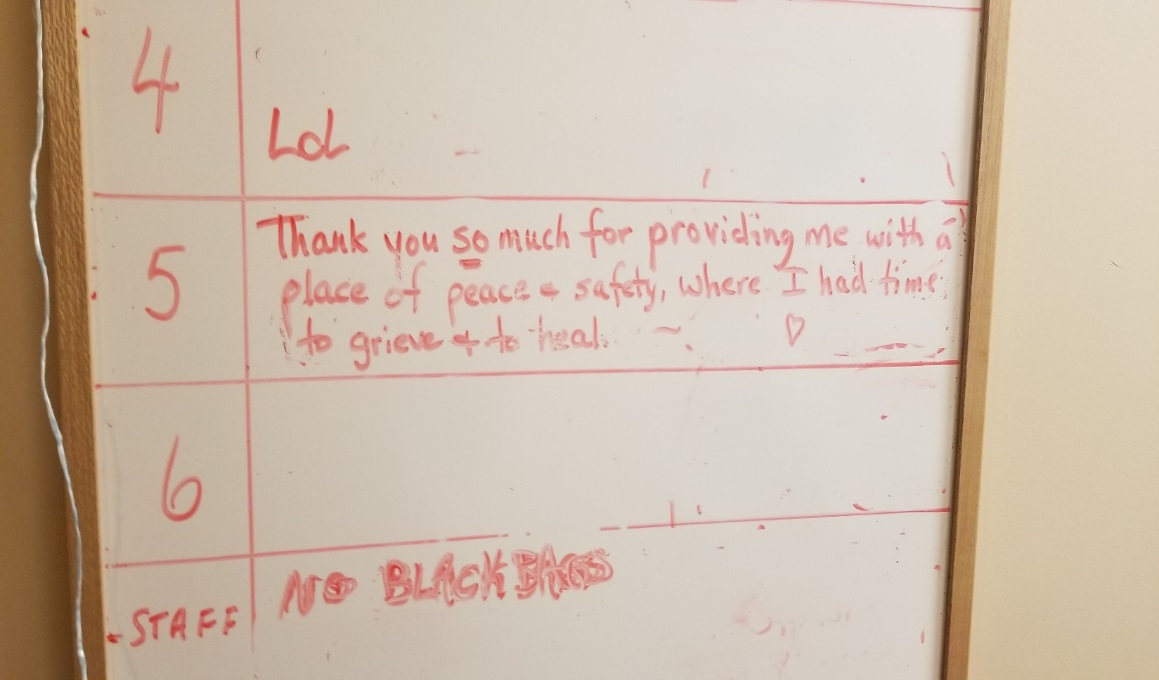 4
LOL
5
Thank you so much for providing me with a
place of peace & safety, where I had time
to grieve & to heal. ~ ♡
6
STAFF
NO BLACK BAGS